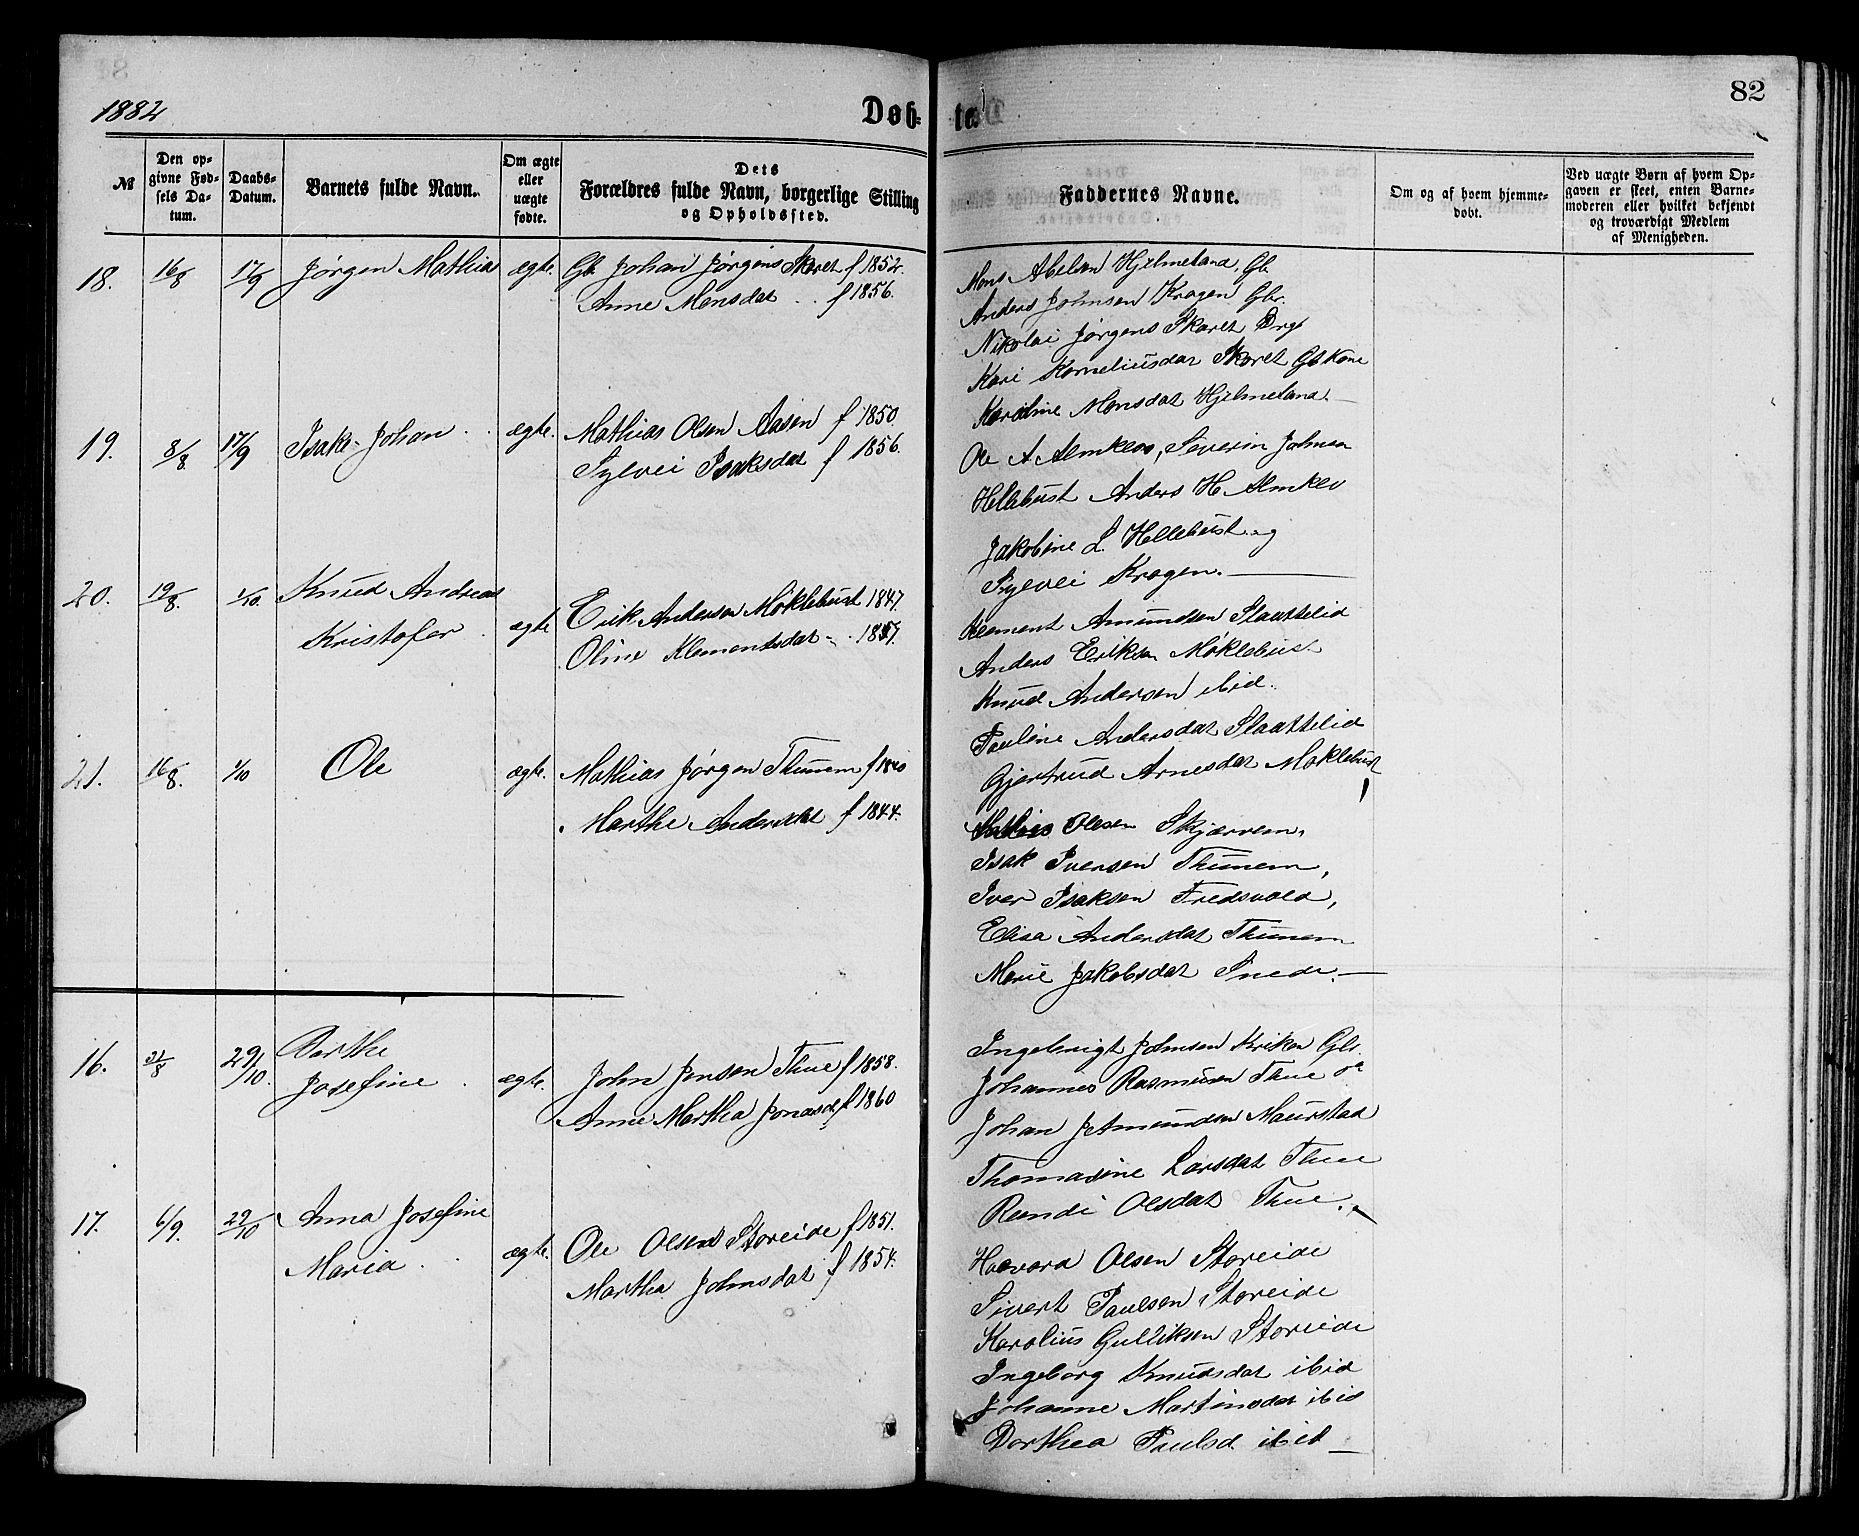 1882
Døb-
te.
82
№
Den op-
givne Fød-
sels Da-
tum.
Daabs-
Datum.
Barnets fulde Navn.
Om ægte
eller
uægte
fødte.
Dets
Forældres fulde Navn, borgerlige Stilling
og Opholdssted.
Faddernes Navne.
Om og af hvem hjemme-
døbt.
Ved uægte Børn af hvem Op-
gaven er skeet, enten Barne-
moderen eller hvilket bekjendt
og troværdigt Medlem
af Menigheden.
18. 16/8 17/9 Jørgen Mathias ægte. Gbr Johan Jørgens Skaret f 1852.
Anne Monsdat f 1856.
Mons Abelsen Hjelmeland, Gb
Anders Johnsen Kragen Gbr.
Nikolai Jørgens Skaret Ung
Kari Korneliusdat Skaret Gbkone
Karoline Monsdat Hjelmeland.
19. 8/8. 17/9 Isak Johan ægte. Mathias Olsen Aasen f 1850
Sylvei Isaksdat f 1856.
Ole A Almklov, Severin Johnsen
Hellebust Anders H Almklov
Jakobine L. Hellebust og
Sylvei Kragen.
20. 19/8. 1/10. Knud Andreas
Kristofer ægte Erik Andersen Møklebust 1847.
Oline Klementsdat 1857.
Klement Amundsen Slaattelid
Anders Eriksen Møklebust
Knud Andersen ibid.
Pauline Andersdat Slaattelid
Gjertrud Arnesdat Møklebust
21. 16/8. 1/10 Ole ægte. Mathias Jørgen Thunem f 1840
Marthe Andersdat f 1844.
Mathias Olsen Skjærvem,
Isak Iversen Thunem,
Iver Isaksen Fredsvold,
Elisa Andersdat Thunem
Marie Jakobsdat Snede.
16. 31/8 29/10. Berthe
Josefine ægte. John Jensen Thue f 1858.
Anne Martha Jonasd f 1860
Ingebrigt Johnsen Kriken Gbr.
Johannes Rasmusen Thue
Johan J Amundsen Maurstad
Thomasine Larsdat Thue
Rendi Olsdat Thue.
17. 6/9. 29/10 Anna Josefine
Maria ægte. Ole Olsen Storeide f 1851.
Martha Johnsdat f 1854.
Haavard Olsen Storeide
Sivert Paulsen Storeide
Karolius Gulliksen Storeide
Ingeborg Knudsdat ibid
Johanne Martinsdat ibid
Dorthea Paulsd ibid